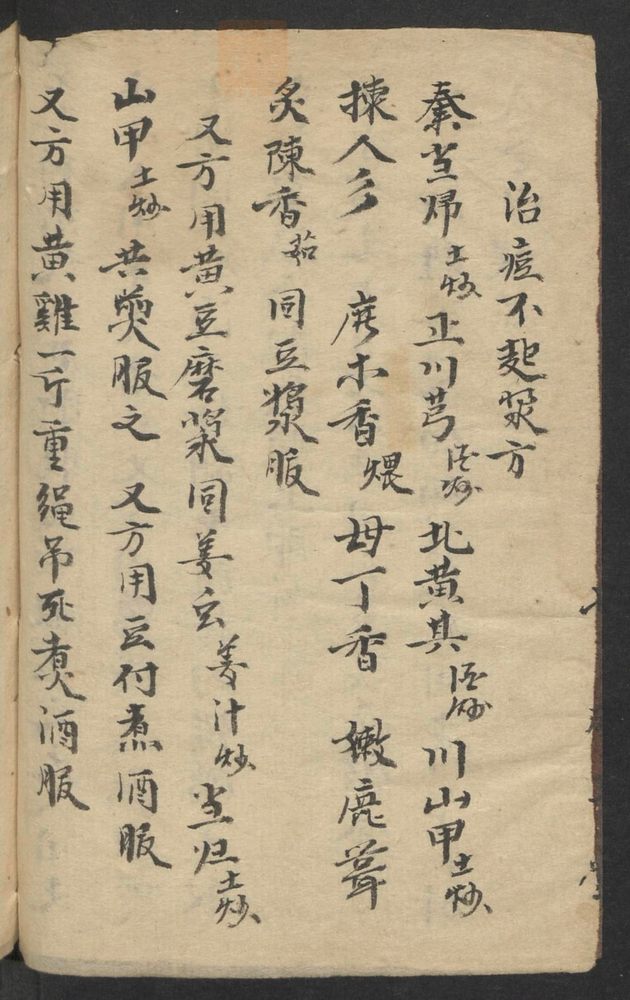 治痘不起漿方
秦当归土炒 正川芎酒炒 北黄其酒炒 川山甲土炒
揀人參 廣木香煨 母丁香 嫩鹿茸
炙陳香茹 同豆漿服
又方用黄豆磨漿同姜虫姜汁炒 当归土炒
山甲土炒 共煲服之 又方用豆付煮酒服
又方用黄雞一斤重绳吊死煮酒服